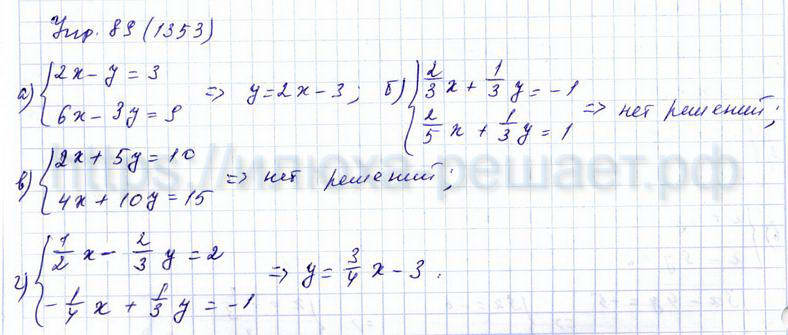 Упр. 89 (1353)
а) { 2x - y = 3
6x - 3y = 9 => y = 2x - 3;
б) { 2/3 x + 1/3 y = -1
2/5 x + 1/3 y = 1 => нет решений;
в) { 2x + 5y = 10
4x + 10y = 15 => нет решений;
г) { 1/2 x - 2/3 y = 2
-1/4 x + 1/3 y = -1 => y = 3/4 x - 3.
https://илюха-решает.рф